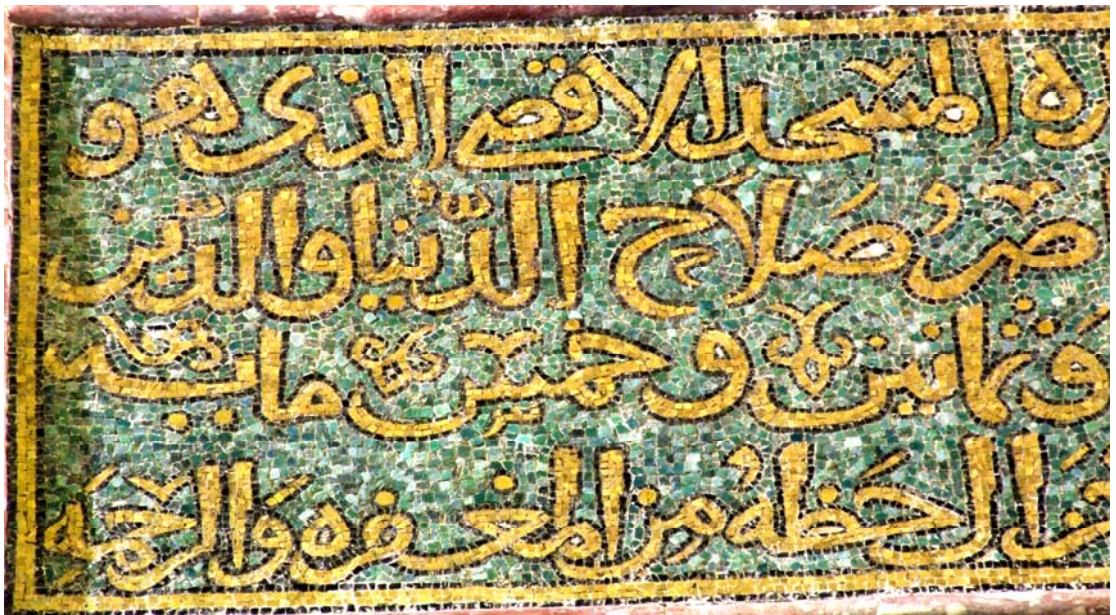 المسجد الاقصى الذى هو
صلاح الدنيا والدين
وثمانين وخمس مايه
حظه من المغفره والرحمه